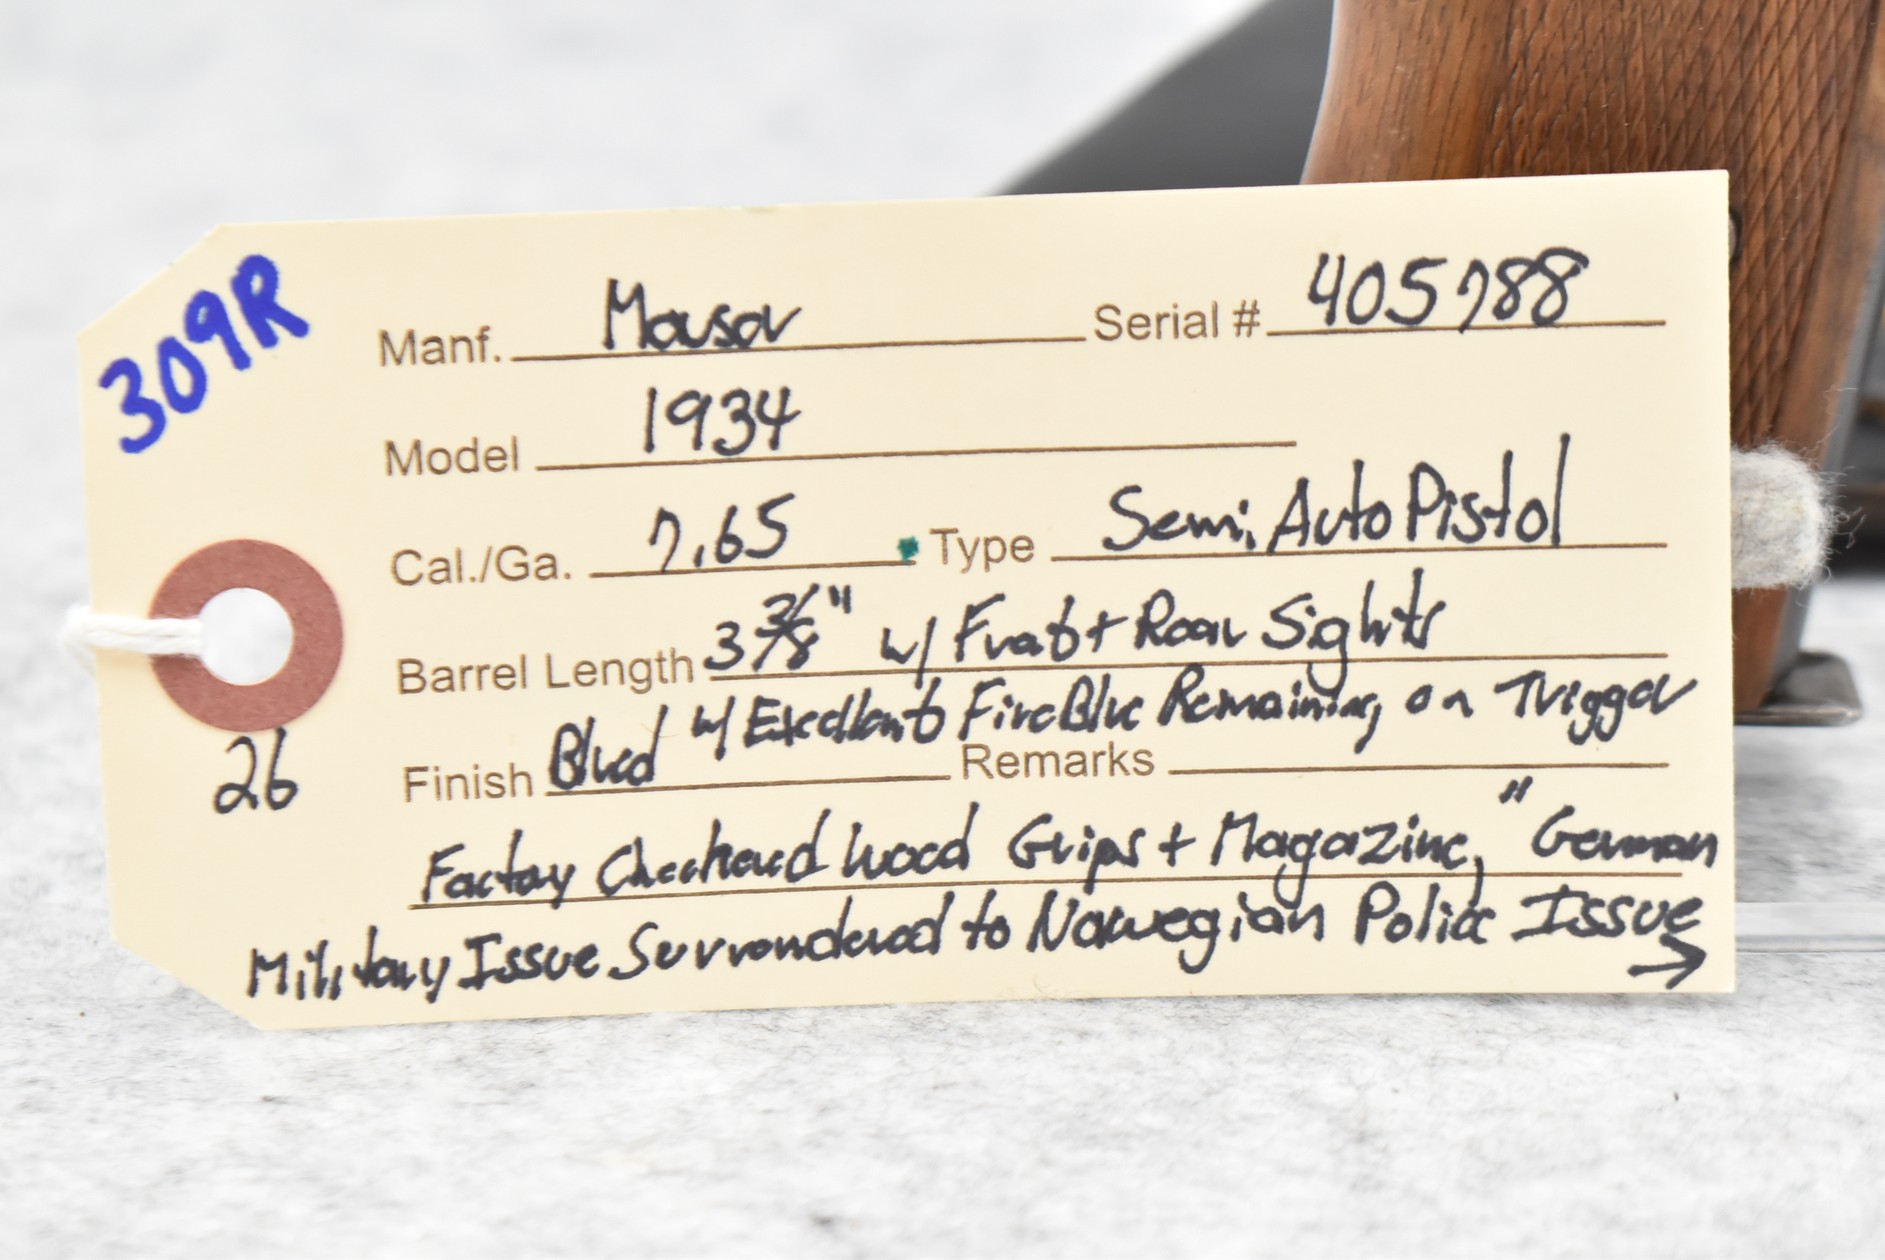 309R
Manf. Mauser Serial # 405788
Model 1934
Cal./Ga. 7.65 Type Semi Auto Pistol
Barrel Length 3 3/8" w/ Front + Rear Sights
Finish Blued w/ Excellent Fire Blue Remaining on Trigger
Remarks
26
Factory Checkered Wood Grips + Magazine, "German
Military Issue Surrendered to Norwegian Police Issue
→